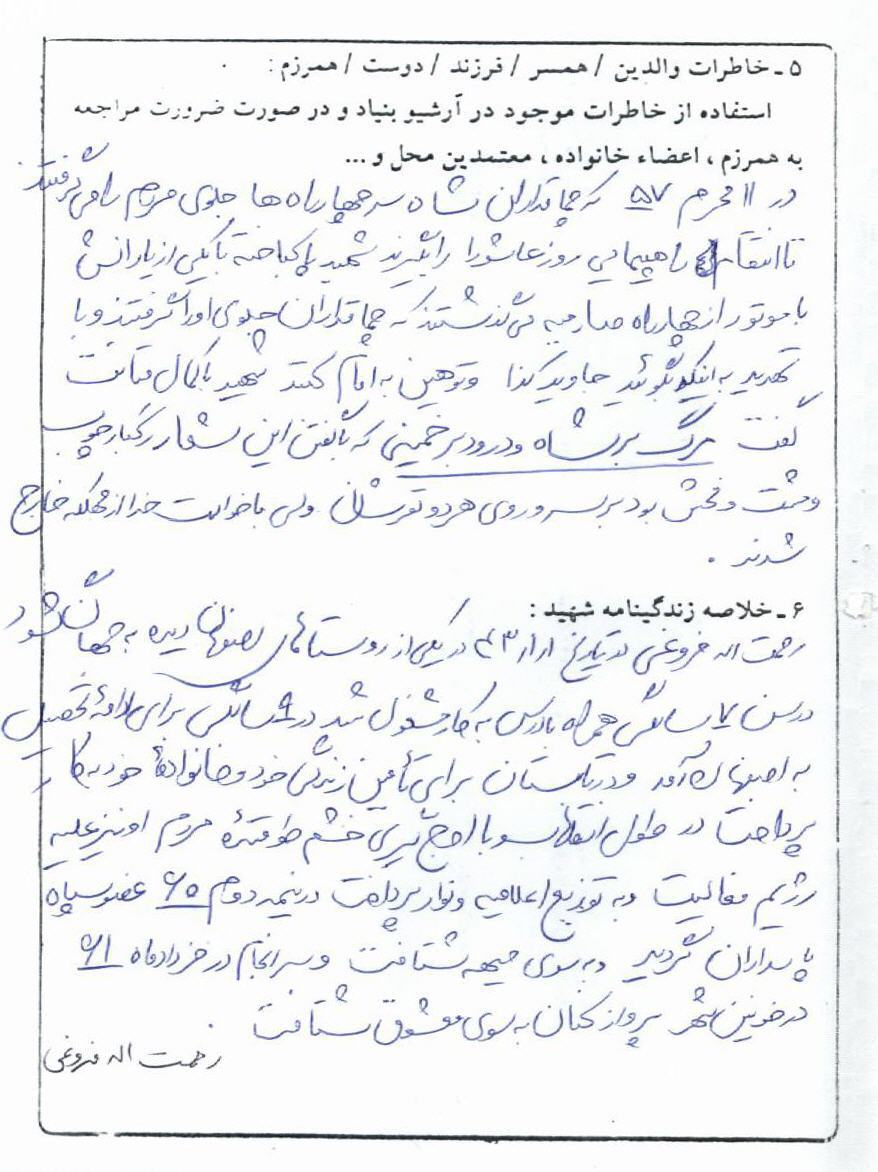 ۵ ـ خاطرات والدین / همسر / فرزند / دوست / همرزم :
استفاده از خاطرات موجود در آرشیو بنیاد و در صورت ضرورت مراجعه
به همرزم ، اعضاء خانواده ، معتمدین محل و ...
در ۱۱ محرم ۵۷ که چماقداران شاه سر چهارراه ها جلوی مردم را می گرفتند
تا انتقام راهپیمایی روز عاشورا را بگیرند شهید پاکباخته با یکی از یارانش
با موتور از چهارراه می گذشتند که چماقداران جلوی او را گرفتند و با
تهدید به اینکه بگوئید جاوید کذا و توهین به امام کنند شهید با کمال متانت
گفت مرگ بر شاه و درود بر خمینی که با گفتن این شعار رگبار چوب
و مشت و فحش بود بر سر و روی هر دو نفرشان ولی با خواست خدا از مهلکه خارج
شدند .
۶ ـ خلاصه زندگینامه شهید :
رحمت اله فروغی در تاریخ ۱ر۱ر۴۳ در یکی از روستاهای اصفهان دیده به جهان گشود
در سن ۷ سالگی همراه با درس به کار مشغول شد در سالگی برای ادامۀ تحصیل
به اصبهان آمد و در تابستان برای تأمین زندگی خود و خانوادۀ خود به کار
پرداخت در طول انقلاب و با اوج گیری خشم مردم او نیز علیه
رژیم فعالیت و به توزیع اعلامیه و نوار پرداخت در نیمه دوم ۶۰ عضو سپاه
پاسداران گردید و به سوی جبهه شتافت و سرانجام در خرداد ماه ۶۱
در خونین شهر پرواز کنان به سوی معشوق شتافت .
رحمت اله فروغی